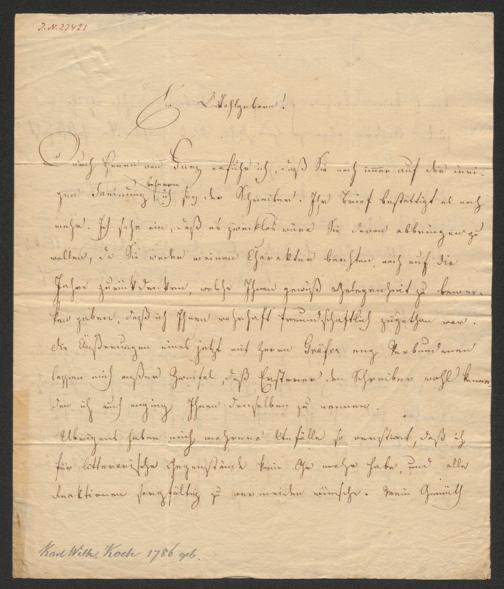 I.N. 27421
Ew Wohlgeboren!
Durch Herrn von erfuhr ich, daß Sie noch immer auf der irri-
gen Meinung beharren, ich sey der Schreiber. Ihr Brief bestättigt es noch
mehr. Ich sehe ein, daß es zwecklos wäre Sie davon abbringen zu
wollen, da Sie weder meinen Charakter beachten, noch auf die
Jahre zurükdenken, welche Ihnen gewiß Gelegenheit zu bemer-
ken gaben, daß ich Ihnen wahrhaft freundschaftlich zugethan war.
Die Äußerungen eines jetzt mit Herrn Gräffer eng Verbundenen
lassen mich außer Zweifel, daß Ersterer den Schreiber wohl kenne
den ich auch Ihnen denselben zu nennen
Übrigens haben mich mehrere Unfälle so verstimt, daß ich
für litterarische Gegenstände kein Ohr mehr habe, und alle
Reaktionen sorgfältig zu vermeiden wünsche. Mein Gemüth
Karl Wilh. Koch 1786 geb.